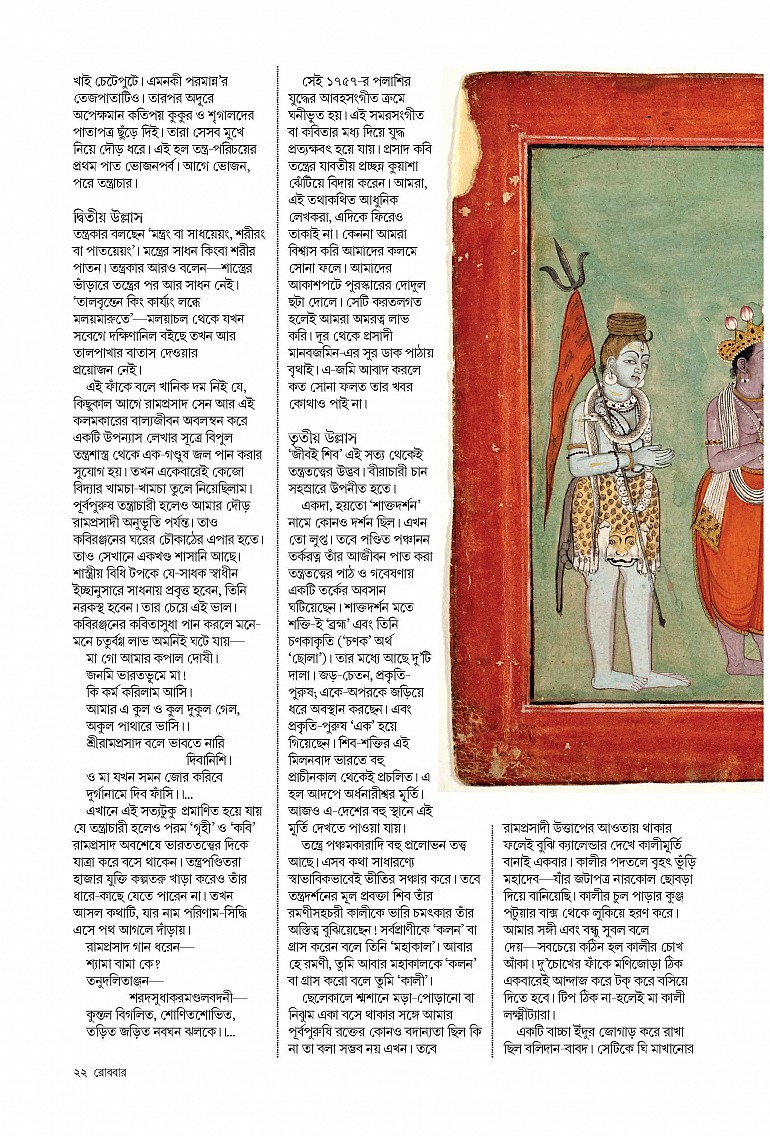 খাই চেটেপুটে। এমনকী পরমান্ন'র
তেজপাতাটিও। তারপর অদূরে
অপেক্ষমান কতিপয় কুকুর ও শৃগালদের
পাতাপত্র ছুঁড়ে দিই। তারা সেসব মুখে
নিয়ে দৌড় ধরে। এই হল তন্ত্র-পরিচয়ের
প্রথম পাত ভোজনপর্ব। আগে ভোজন,
পরে তন্ত্রাচার।
দ্বিতীয় উল্লাস
তন্ত্রকার বলছেন 'মন্ত্রং বা সাধয়েয়ং, শরীরং
বা পাতয়েয়ং'। মন্ত্রের সাধন কিংবা শরীর
পাতন। তন্ত্রকার আরও বলেন—শাস্ত্রের
ভাঁড়ারে তন্ত্রের পর আর সাধন নেই।
'তালবৃন্তেন কিং কার্য্যং লব্ধে
মলয়মারুতে'—মলয়াচল থেকে যখন
সবেগে দক্ষিণানিল বইছে তখন আর
তালপাখার বাতাস দেওয়ার
প্রয়োজন নেই।
এই ফাঁকে বলে খানিক দম নিই যে,
কিছুকাল আগে রামপ্রসাদ সেন আর এই
কলমকারের বাল্যজীবন অবলম্বন করে
একটি উপন্যাস লেখার সূত্রে বিপুল
তন্ত্রশাস্ত্র থেকে এক-গণ্ডূষ জল পান করার
সুযোগ হয়। তখন একেবারেই কেজো
বিদ্যার খামচা-খামচা তুলে নিয়েছিলাম।
পূর্বপুরুষ তন্ত্রাচারী হলেও আমার দৌড়
রামপ্রসাদী অনুভূতি পর্যন্ত। তাও
কবিরঞ্জনের ঘরের চৌকাঠের এপার হতে।
তাও সেখানে একখণ্ড শাসানি আছে।
শাস্ত্রীয় বিধি টপকে যে-সাধক স্বাধীন
ইচ্ছানুসারে সাধনায় প্রবৃত্ত হবেন, তিনি
নরকস্থ হবেন। তার চেয়ে এই ভাল।
কবিরঞ্জনের কবিতাসুধা পান করলে মনে-
মনে চতুর্বগ্গ লাভ অমনিই ঘটে যায়—
মা গো আমার কপাল দোষী।
জনমি ভারতভূমে মা!
কি কর্ম করিলাম আসি।
আমার এ কুল ও কুল দুকুল গেল,
অকুল পাথারে ভাসি।।
শ্রীরামপ্রসাদ বলে ভাবতে নারি
দিবানিশি।
ও মা যখন সমন জোর করিবে
দুর্গানামে দিব ফাঁসি।।...
এখানে এই সত্যটুকু প্রমাণিত হয়ে যায়
যে তন্ত্রাচারী হলেও পরম 'গৃহী' ও 'কবি'
রামপ্রসাদ অবশেষে ভারততত্ত্বের দিকে
যাত্রা করে বসে থাকেন। তন্ত্রপণ্ডিতরা
হাজার যুক্তি কল্পতরু খাড়া করেও তাঁর
ধারে-কাছে যেতে পারেন না। তখন
আসল কথাটি, যার নাম পরিণাম-সিদ্ধি
এসে পথ আগলে দাঁড়ায়।
রামপ্রসাদ গান ধরেন—
শ্যামা বামা কে?
তনুদলিতাঞ্জন—
শরদসুধাকরমণ্ডলবদনী—
কুন্তল বিগলিত, শোণিতশোভিত,
তড়িত জড়িত নবঘন ঝলকে।।...
সেই ১৭৫৭-র পলাশির
যুদ্ধের আবহসংগীত ক্রমে
ঘনীভূত হয়। এই সমরসংগীত
বা কবিতার মধ্য দিয়ে যুদ্ধ
প্রত্যক্ষবৎ হয়ে যায়। প্রসাদ কবি
তন্ত্রের যাবতীয় প্রচ্ছন্ন কুয়াশা
ঝেঁটিয়ে বিদায় করেন। আমরা,
এই তথাকথিত আধুনিক
লেখকরা, এদিকে ফিরেও
তাকাই না। কেননা আমরা
বিশ্বাস করি আমাদের কলমে
সোনা ফলে। আমাদের
আকাশপটে পুরস্কারের দোদুল
ছটা দোলে। সেটি করতলগত
হলেই আমরা অমরত্ব লাভ
করি। দূর থেকে প্রসাদী
মানবজমিন-এর সুর ডাক পাঠায়
বৃথাই। এ-জমি আবাদ করলে
কত সোনা ফলত তার খবর
কোথাও পাই না।
তৃতীয় উল্লাস
'জীবই শিব' এই সত্য থেকেই
তন্ত্রতত্ত্বের উদ্ভব। বীরাচারী চান
সহস্রারে উপনীত হতে।
একদা, হয়তো 'শাক্তদর্শন'
নামে কোনও দর্শন ছিল। এখন
তো লুপ্ত। তবে পণ্ডিত পঞ্চানন
তর্করত্ন তাঁর আজীবন পাত করা
তন্ত্রতত্ত্বের পাঠ ও গবেষণায়
একটি তর্কের অবসান
ঘটিয়েছেন। শাক্তদর্শন মতে
শক্তি-ই 'ব্রহ্ম' এবং তিনি
চণকাকৃতি ('চণক' অর্থ
'ছোলা')। তার মধ্যে আছে দু'টি
দালা। জড়-চেতন, প্রকৃতি-
পুরুষ; একে-অপরকে জড়িয়ে
ধরে অবস্থান করছেন। এবং
প্রকৃতি-পুরুষ 'এক' হয়ে
গিয়েছেন। শিব-শক্তির এই
মিলনবাদ ভারতে বহু
প্রাচীনকাল থেকেই প্রচলিত। এ
হল আদপে অর্ধনারীশ্বর মূর্তি।
আজও এ-দেশের বহু স্থানে এই
মূর্তি দেখতে পাওয়া যায়।
তন্ত্রে পঞ্চমকারাদি বহু প্রলোভন তত্ত্ব
আছে। এসব কথা সাধারণ্যে
স্বাভাবিকভাবেই ভীতির সঞ্চার করে। তবে
তন্ত্রদর্শনের মূল প্রবক্তা শিব তাঁর
রমণীসহচরী কালীকে ভারি চমৎকার তাঁর
অস্তিত্ব বুঝিয়েছেন! সর্বপ্রাণীকে 'কলন' বা
গ্রাস করেন বলে তিনি 'মহাকাল'। আবার
হে রমণী, তুমি আবার মহাকালকে 'কলন'
বা গ্রাস করো বলে তুমি 'কালী'।
ছেলেকালে শ্মশানে মড়া-পোড়ানো বা
নিঝুম একা বসে থাকার সঙ্গে আমার
পূর্বপুরুষি রক্তের কোনও বদান্যতা ছিল কি
না তা বলা সম্ভব নয় এখন। তবে
রামপ্রসাদী উত্তাপের আওতায় থাকার
ফলেই বুঝি ক্যালেন্ডার দেখে কালীমূর্তি
বানাই একবার। কালীর পদতলে বৃহৎ ভুঁড়ি
মহাদেব—যাঁর জটাপত্র নারকোল ছোবড়া
দিয়ে বানিয়েছি। কালীর চুল পাড়ার কুঞ্জ
পটুয়ার বাক্স থেকে লুকিয়ে হরণ করে।
আমার সঙ্গী এবং বন্ধু সুবল বলে
দেয়—সবচেয়ে কঠিন হল কালীর চোখ
আঁকা। দু'চোখের ফাঁকে মণিজোড়া ঠিক
একবারেই আন্দাজ করে টক্ করে বসিয়ে
দিতে হবে। টিপ ঠিক না-হলেই মা কালী
লক্ষ্মীট্যারা।
একটি বাচ্চা ইঁদুর জোগাড় করে রাখা
ছিল বলিদান-বাবদ। সেটিকে ঘি মাখানোর
২২ রোববার